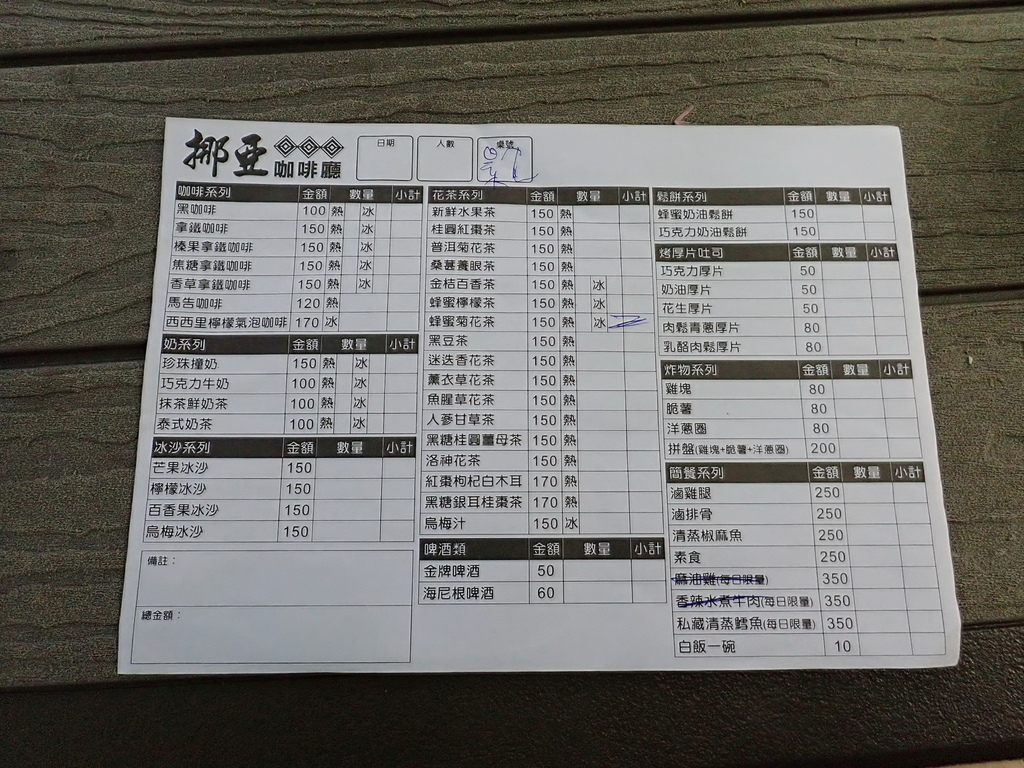 挪亞
咖啡廳
日期
人數
桌號
咖啡系列 金額 數量 小計
黑咖啡 100 熱 冰
拿鐵咖啡 150 熱 冰
榛果拿鐵咖啡 150 熱 冰
焦糖拿鐵咖啡 150 熱 冰
香草拿鐵咖啡 150 熱 冰
馬告咖啡 120 熱
西西里檸檬氣泡咖啡 170 冰
奶系列 金額 數量 小計
珍珠撞奶 150 熱 冰
巧克力牛奶 100 熱 冰
抹茶鮮奶茶 100 熱 冰
泰式奶茶 100 熱 冰
冰沙系列 金額 數量 小計
芒果冰沙 150
檸檬冰沙 150
百香果冰沙 150
烏梅冰沙 150
備註：
總金額：
花茶系列 金額 數量 小計
新鮮水果茶 150 熱
桂圓紅棗茶 150 熱
普洱菊花茶 150 熱
桑葚養眼茶 150 熱
金桔百香茶 150 熱 冰
蜂蜜檸檬茶 150 熱 冰
蜂蜜菊花茶 150 熱 冰
黑豆茶 150 熱
迷迭香花茶 150 熱
薰衣草花茶 150 熱
魚腥草花茶 150 熱
人蔘甘草茶 150 熱
黑糖桂圓薑母茶 150 熱
洛神花茶 150 熱
紅棗枸杞白木耳 170 熱
黑糖銀耳桂棗茶 170 熱
烏梅汁 150 冰
啤酒類 金額 數量 小計
金牌啤酒 50
海尼根啤酒 60
鬆餅系列 金額 數量 小計
蜂蜜奶油鬆餅 150
巧克力奶油鬆餅 150
烤厚片吐司 金額 數量 小計
巧克力厚片 50
奶油厚片 50
花生厚片 50
肉鬆青蔥厚片 80
乳酪肉鬆厚片 80
炸物系列 金額 數量 小計
雞塊 80
脆薯 80
洋蔥圈 80
拼盤(雞塊+脆薯+洋蔥圈) 200
簡餐系列 金額 數量 小計
滷雞腿 250
滷排骨 250
清蒸椒麻魚 250
素食 250
麻油雞(每日限量) 350
香辣水煮牛肉(每日限量) 350
私藏清蒸鱈魚(每日限量) 350
白飯一碗 10